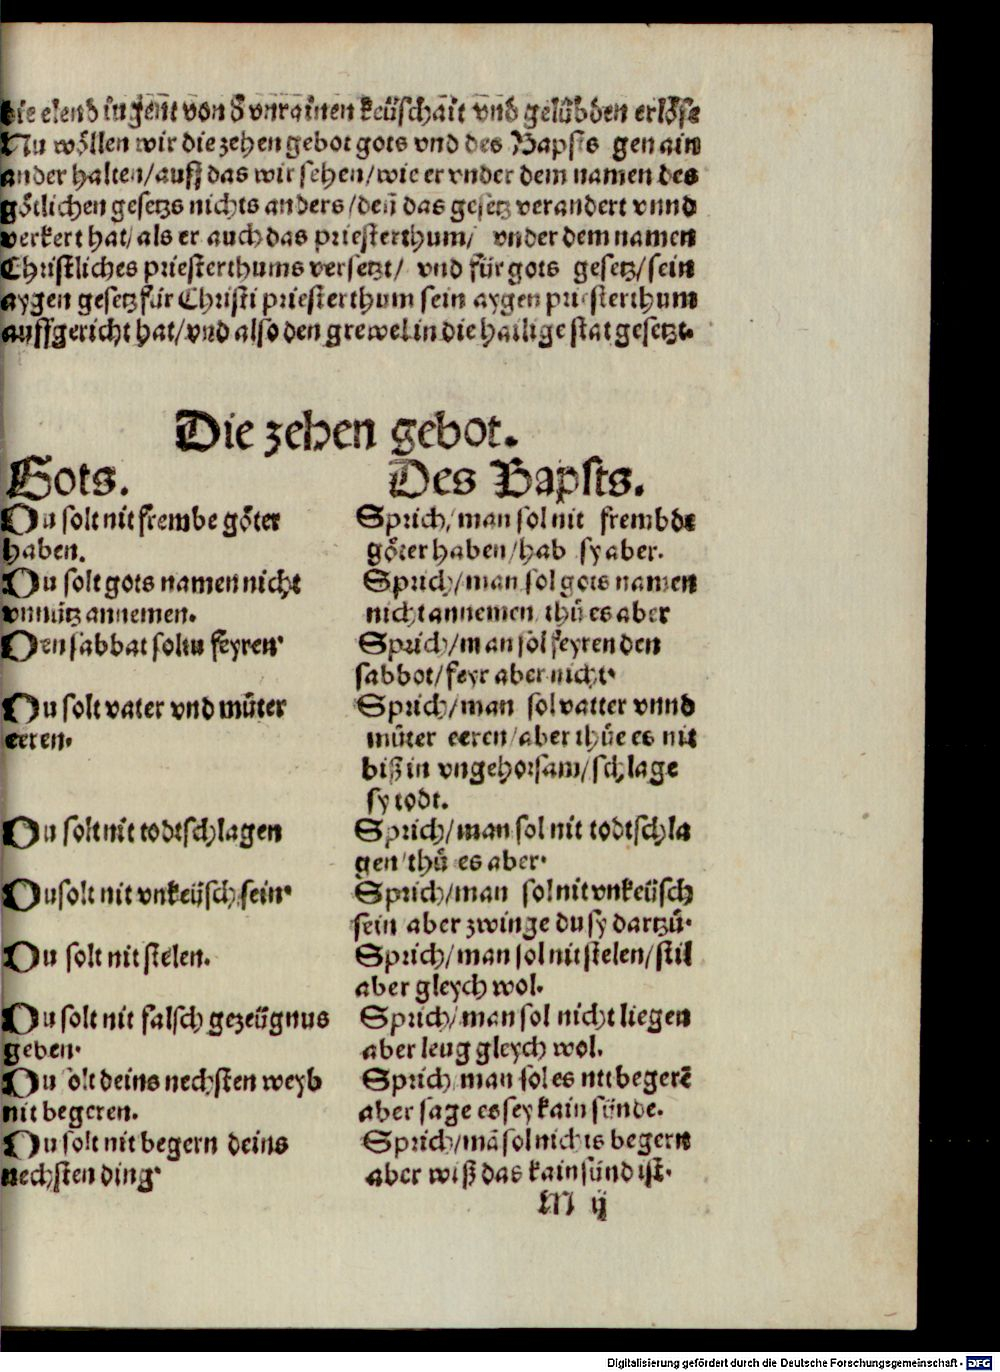 die elend iugent von d vnrainen keüschait vnd gelübden erlöse
Nu wöllen wir die zehen gebot gots vnd des Bapsts gen ain
ander halten/auff das wir sehen/wie er vnder dem namen des
götlichen gesetzs nichts anders/deñ das gesetz verandert vnnd
verkert hat/als er auch das priesterthum/ vnder dem namen
Christliches priesterthums versetzt/ vnd für gots gesetz/sein
aygen gesetz für Christi priesterthum sein aygen priesterthum
auffgericht hat/vnd also den grewel in die hailige stat gesetzt.
Die zehen gebot.
Gots.
Du solt nit frembe göter
haben.
Du solt gots namen nicht
vnnütz annemen.
Den sabbat soltu feyren.
Du solt vater vnd müter
eeren.
Du solt nit todtschlagen
Du solt nit vnkeüsch sein.
Du solt nit stelen.
Du solt nit falsch gezeügnus
geben.
Du olt deins nechsten weyb
nit begeren.
Du solt nit begern deins
nechsten ding.
Des Bapsts.
Sprich/man sol nit frembde
göter haben/hab sy aber.
Sprich/man sol gots namen
nicht annemen thů es aber
Sprich/man sol feyren den
sabbot/feyr aber nicht.
Sprich/man sol vatter vnnd
müter eeren/aber thüe es nit
biß in vngehorsam/schlage
sy todt.
Sprich/man sol nit todtschla
gen/thů es aber.
Sprich/man sol nit vnkeüsch
sein aber zwinge du sy dartzů.
Sprich/man sol nit stelen/stil
aber gleych wol.
Sprich/man sol nicht liegen
aber leug gleych wol.
Sprich man sol es nit begerẽ
aber sage es sey kain sünde.
Sprich/mã sol nichts begern
aber wiß das kain sünd ist.
M ij
Digitalisierung gefördert durch die Deutsche Forschungsgemeinschaft - DFG